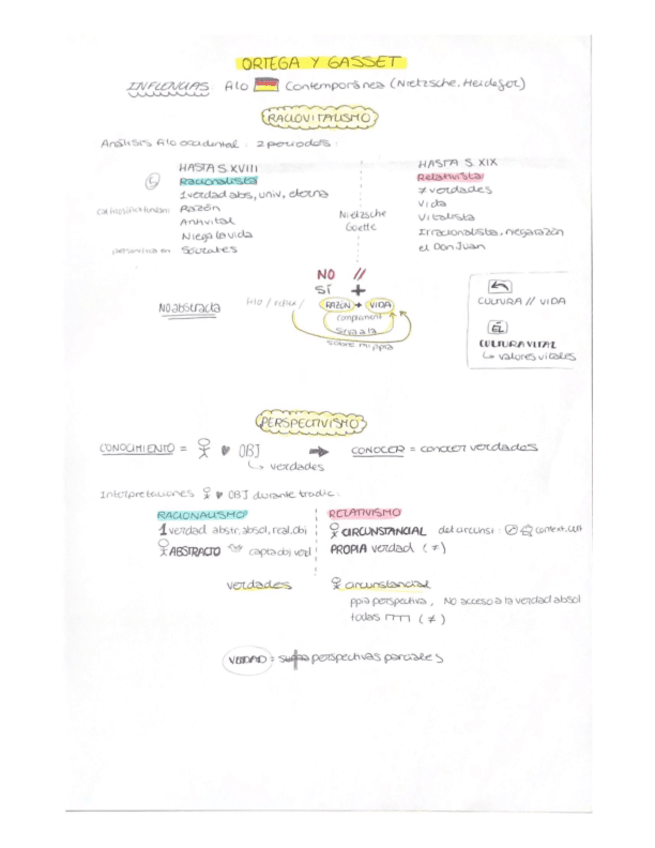 ORTEGA Y GASSET
INFLUENCIAS: Filo Contemporánea (Nietzsche, Heidegger)
RACIOVITALISMO
Análisis filo occidental: 2 periodos:
HASTA S XVIII
Racionalista
1 verdad abs, univ, eterna
Razón
Antivital
Niega la vida
Sócrates
HASTA S. XIX
Relativista
≠ verdades
Vida
Vitalista
Irracionalista, niega razón
el Don Juan
Nietzsche
Goette
NO //
SÍ +
NO abstracta
RAZÓN + VIDA
complement
Sirva a la
CULTURA // VIDA
ÉL
CULTURA VITAL
↳ valores vitales
PERSPECTIVISMO
CONOCIMIENTO = OBJ → CONOCER = conocer verdades
↳ verdades
Interpretaciones OBJ durante tradic:
RACIONALISMO
1 verdad abstr, absol, real, obj
ABSTRACTO capta obj verd
RELATIVISMO
CIRCUNSTANCIAL del circunst: context. cult
PROPIA verdad (≠)
verdades
circunstancial
ppia perspectiva, No acceso a la verdad absol
todas (≠)
VERDAD = suma perspectivas parciales